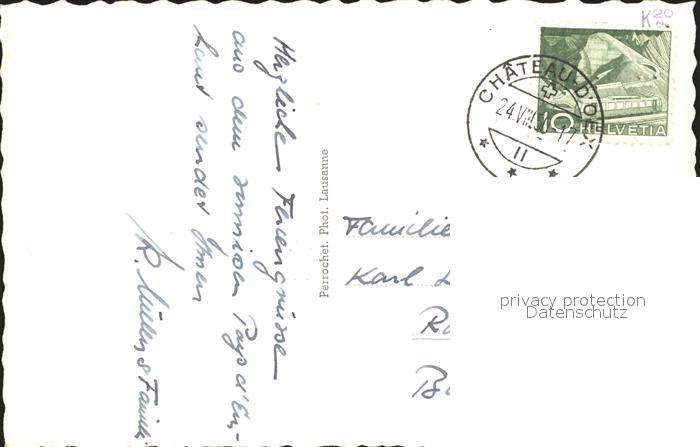 K 20
CHÂTEAU-D'OEX
24.VIII.50-17
II
10 HELVETIA
Herzliche Feriengrüsse
aus dem sonnigen Pays d'En-
haut sendet Ihnen
K. Müller & Famil
Perrochet. Phot. Lausanne
Familie
Karl
privacy protection
Datenschutz